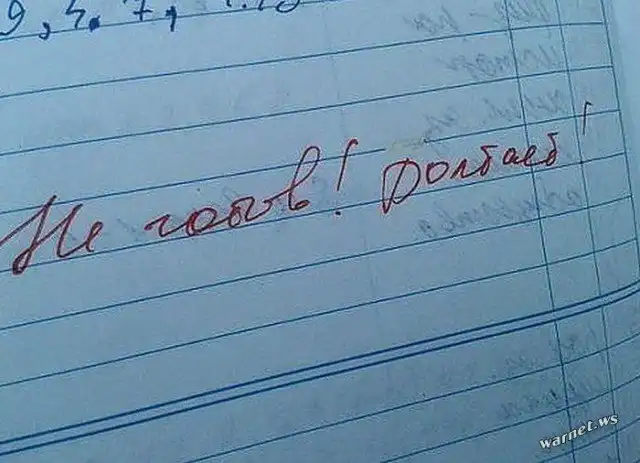 9, 4. 7,
Не готов! Долбаеб!
warnet.ws